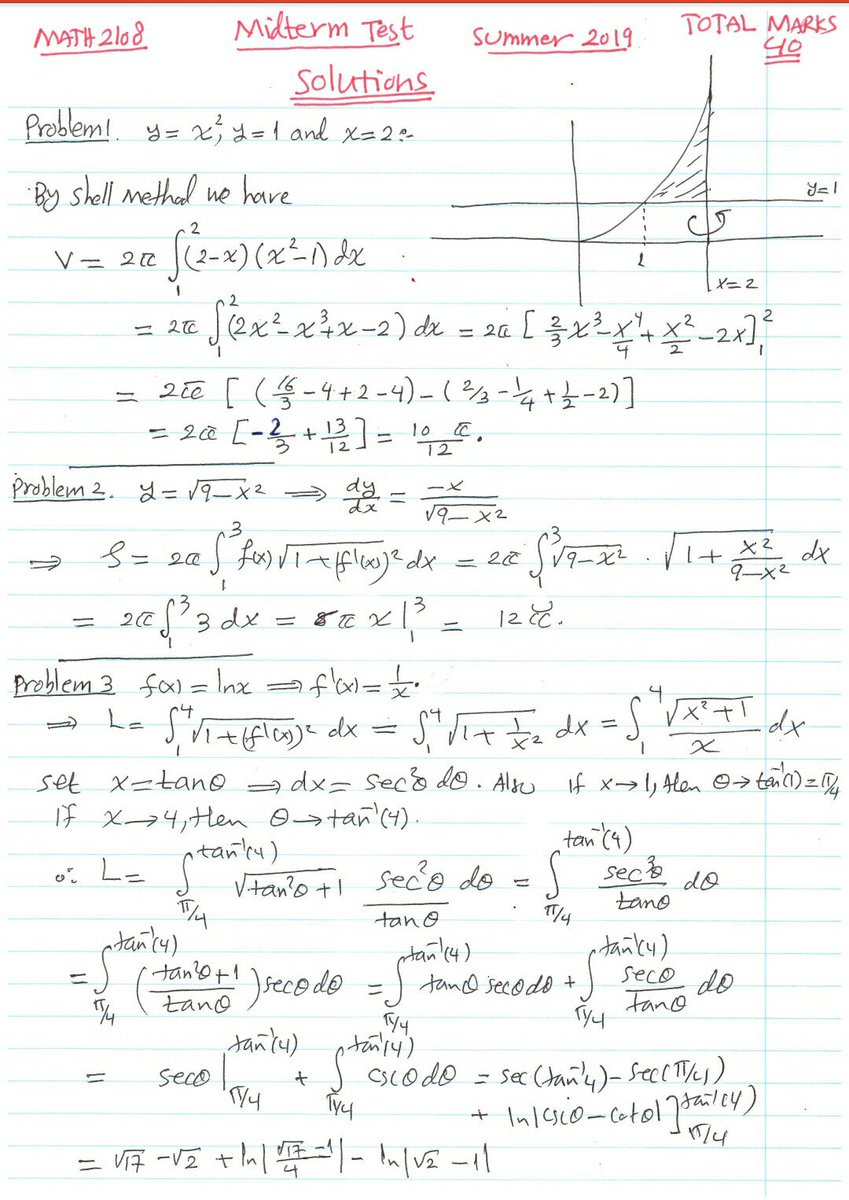 MATH 2108 Midterm Test Summer 2019 TOTAL MARKS 40
Solutions
Problem 1. y = x², y = 1 and x = 2 :-
y=1
1
x=2
By shell method we have
V = 2π ∫₁² (2-x)(x²-1) dx
= 2π ∫₁² (2x² - x³ + x - 2) dx = 2π [ 2/3 x³ - x⁴/4 + x²/2 - 2x ]₁²
= 2π [ (16/3 - 4 + 2 - 4) - (2/3 - 1/4 + 1/2 - 2) ]
= 2π [ -2/3 + 13/12 ] = 10/12 π.
Problem 2. y = √(9-x²) ⟹ dy/dx = -x/√(9-x²)
⟹ S = 2π ∫₁³ f(x) √(1+(f'(x))²) dx = 2π ∫₁³ √(9-x²) · √(1 + x²/(9-x²)) dx
= 2π ∫₁³ 3 dx = 6π x |₁³ = 12π.
Problem 3 f(x) = ln x ⟹ f'(x) = 1/x.
⟹ L = ∫₁⁴ √(1+(f'(x))²) dx = ∫₁⁴ √(1 + 1/x²) dx = ∫₁⁴ √(x²+1)/x dx
set x = tanθ ⟹ dx = sec²θ dθ. Also if x→1, then θ→tan⁻¹(1) = π/4
If x→4, then θ→tan⁻¹(4).
∴ L = ∫_{π/4}^{tan⁻¹(4)} √(tan²θ+1) sec²θ/tanθ dθ = ∫_{π/4}^{tan⁻¹(4)} sec³θ/tanθ dθ
= ∫_{π/4}^{tan⁻¹(4)} ((tan²θ+1)/tanθ) secθ dθ = ∫_{π/4}^{tan⁻¹(4)} tanθ secθ dθ + ∫_{π/4}^{tan⁻¹(4)} secθ/tanθ dθ
= secθ |_{π/4}^{tan⁻¹(4)} + ∫_{π/4}^{tan⁻¹(4)} cscθ dθ = sec(tan⁻¹4) - sec(π/4)
+ ln|cscθ - cotθ| ]_{π/4}^{tan⁻¹(4)}
= √17 - √2 + ln|(√17 - 1)/4| - ln|√2 - 1|